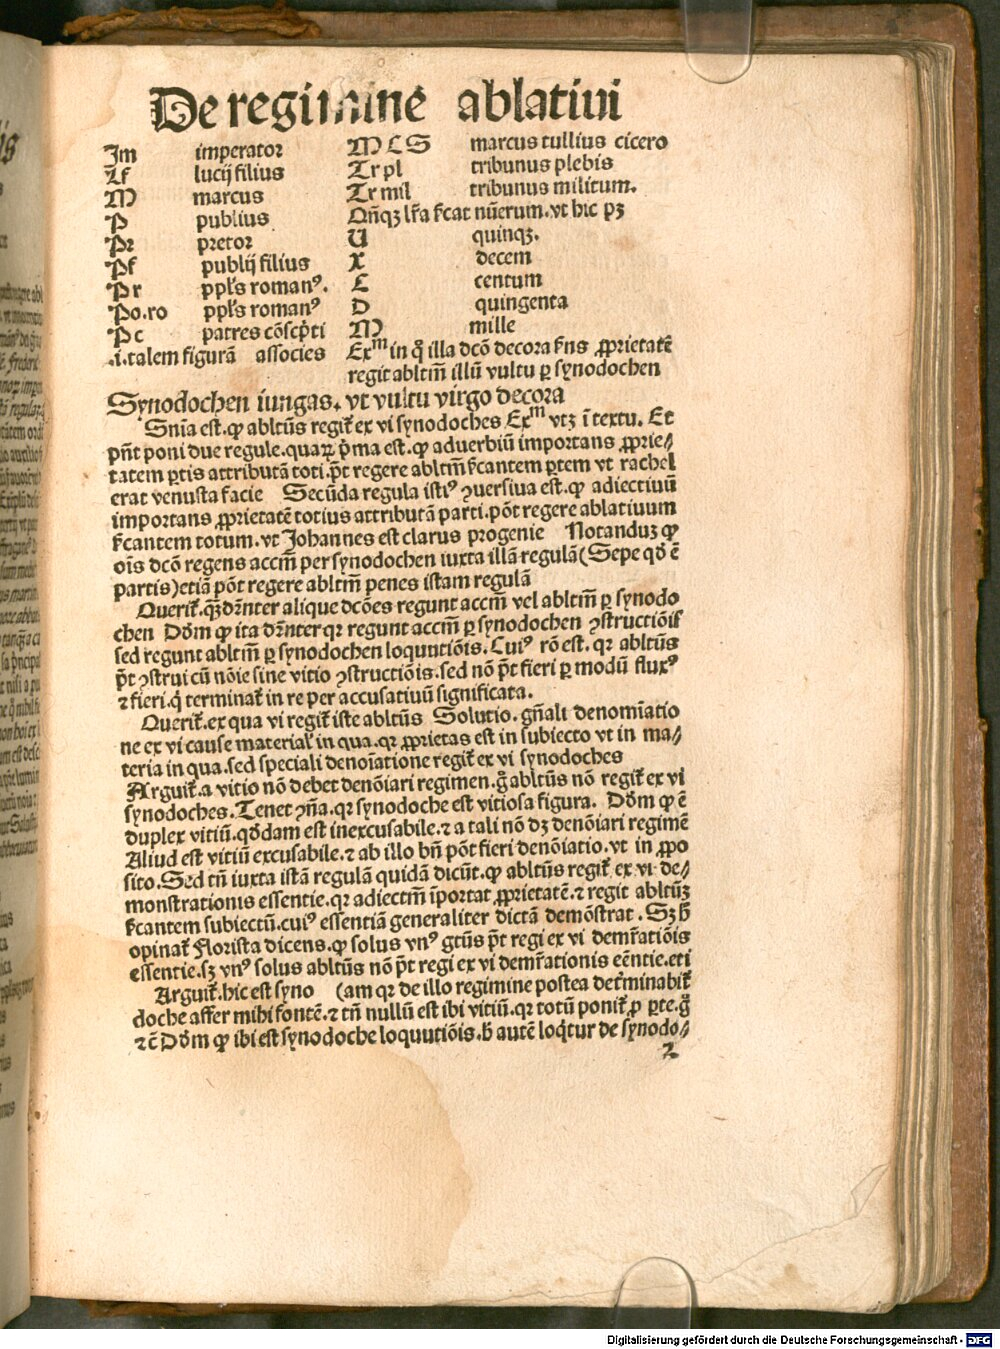 De regimine ablatiui
Im imperator M C S marcus tullius cicero
Lf lucij filius Tr pl tribunus plebis
M marcus Tr mil tribunus militum.
P publius Qñqꝫ lr̃a ſ̃cat nũerum. vt hic pꝫ
Pr pretor U quinqꝫ.
Pf publij filius X decem
P r ppl̃s romanꝰ. C centum
Po.ro ppl̃s romanꝰ D quingenta
P c patres cõſcp̃ti M mille
.i. talem figurã associes Exᵐ in q̃ illa dcõ decora ſ̃ns ꝓprietatẽ
regit abltm̃ illũ vultu ꝑ synodochen
Synodochen iungas. vt vultu virgo decora
Snĩa est. ꝙ abltũs regit̃ ex vi synodoches Exᵐ vtꝫ ĩ textu. Et
pñt poni due regule. quaꝝ p̃ma est. ꝙ aduerbiũ importans ꝓprie⸗
tatem ꝑtis attributã toti. põt regere abltm̃ ſ̃cantem ꝑtem vt rachel
erat venusta facie Secũda regula istiꝰ ꝯuersiua est. ꝙ adiectiuũ
importans ꝓprietatẽ totius attributã parti. põt regere ablatiuum
ſ̃cantem totum. vt Johannes est clarus progenie Notanduꝫ ꝙ
oĩs dcõ regens accm̃ per synodochen iuxta illã regulã (Sepe qđ ẽ
partis) etiã põt regere abltm̃ penes istam regulã
Querit̃. qꝫ dr̃nter alique dcões regunt accm̃ vel abltm̃ ꝑ synodo
chen Dõm ꝙ ita dr̃nter qꝛ regunt accm̃ ꝑ synodochen ꝯstructiõis
sed regunt abltm̃ ꝑ synodochen loquutiõis. Cuiꝰ rõ est. qꝛ abltũs
põt ꝯstrui cũ nõie sine vitio ꝯstructiõis. sed nõ põt fieri ꝑ modũ fluxꝰ
⁊ fieri. q̃ terminat̃ in re per accusatiuũ significata.
Querit̃. ex qua vi regit̃ iste abltũs Solutio. gñali denomĩatio
ne ex vi cause material̃ in qua. qꝛ ꝓprietas est in subiecto vt in ma⸗
teria in qua. sed speciali denoĩatione regit̃ ex vi synodoches
Arguit̃. a vitio nõ debet denõiari regimen. g̃ abltũs nõ regit̃ ex vi
synodoches. Tenet ꝯña. qꝛ synodoche est vitiosa figura. Dõm ꝙ ẽ
duplex vitiũ. qđdam est inexcusabile. ⁊ a tali nõ dꝫ denõiari regimẽ
Aliud est vitiũ excusabile. ⁊ ab illo bñ põt fieri denõiatio. vt in ꝓpo
sito. Sed tñ iuxta istã regulã quidã dicũt. ꝙ abltũs regit̃ ex vi de⸗
monstrationis essentie. qꝛ adiectm̃ ĩportat ꝓprietatẽ. ⁊ regit abltũꝫ
ſ̃cantem subiectũ. cuiꝰ essentiã generaliter dictã demõstrat. Sꝫ h̃
opinat̃ Florista dicens. ꝙ solus vnꝰ gtũs põt regi ex vi demr̃atiõis
essentie. sꝫ vnꝰ solus abltũs nõ põt regi ex vi demr̃ationis eẽntie. eti
Arguit̃. hic est syno (am qꝛ de illo regimine postea det̃minabit̃
doche affer mihi fontẽ. ⁊ tñ nullũ est ibi vitiũ. qꝛ totũ ponit̃ ꝓ ꝑte. g̃
⁊ c̃ Dõm ꝙ ibi est synodoche loquutiõis. h̃ autẽ loq̃tur de synodo⸗
2
Digitalisierung gefördert durch die Deutsche Forschungsgemeinschaft - DFG